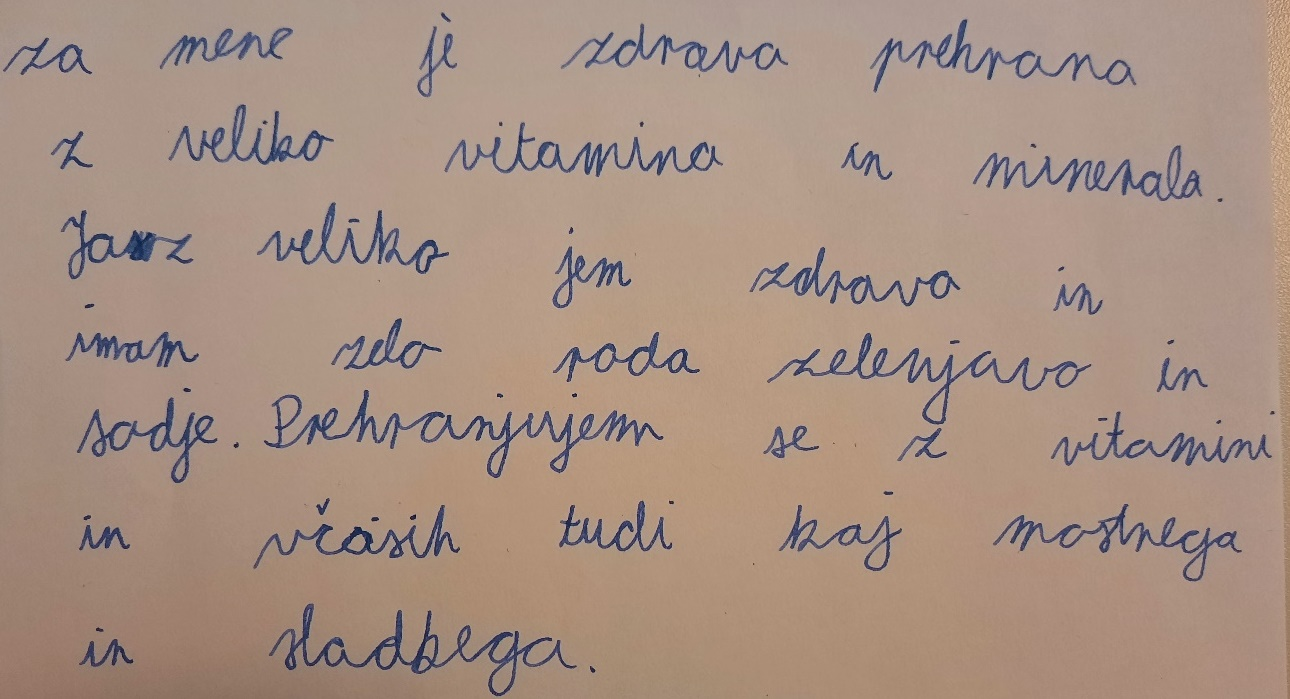 za mene je zdrava prehrana
z veliko vitamina in minerala.
Jaz veliko jem zdravo in
imam zelo rada zelenjavo in
sadje. Prehranjujem se z vitamini
in včasih tudi kaj mastnega
in sladkega.